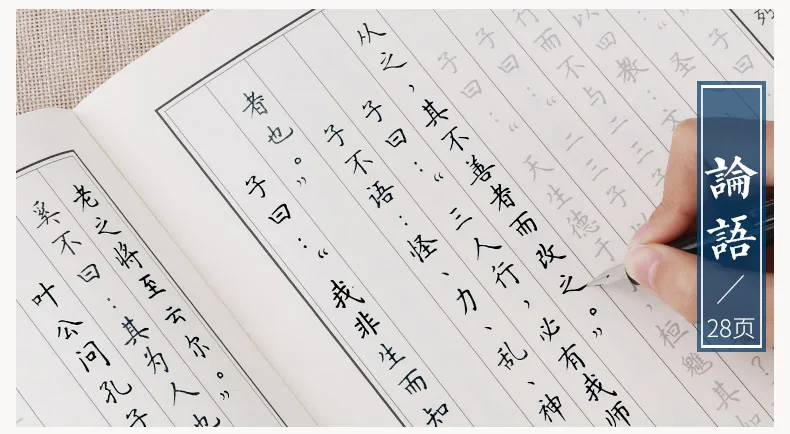 叶公问孔子
奚不曰：其为人也
老之将至云尔。”
子曰：“我非生而知
者也。”
子不语：怪、力、乱、神
子曰：“三人行，必有我师
从之，其不善者而改之。”
子曰：“天生德于，桓魋其
子曰：“二三子以
行而不与二三子
以四教：文
圣
子曰
論語
28页